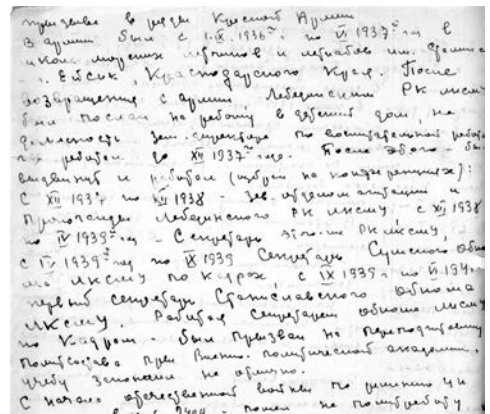 призван в ряды Красной Армии
В армии был с 1.X.1936г. по VI 1937г в
школе морских летчиков и летнабов им. Сталина
г. Ейськ, Краснодарского Края. После
возвращения с армии, Лебединским РК лксму
был послан на работу в детский дом, на
должность зам. директора по воспитательной работе
где работал до XII 1937г года. После этого - был
выдвинут и работал (избран на конференциях):
С XII 1937 по XII 1938 - зав. отделом агитации и
Пропаганды Лебединского РК лксму, с XII 1938
по IV 1939г - Секретарь этого РК лксму,
С IV 1939г по IX 1939 Секретарь Сумского обко
ма лксму по кадрах, с IX 1939г по VI 194
первый секретарь Станиславского обкома
лксму. Работая секретарем обкома лксму
по кадрам - был призван на переподготовку
политсостава при Военно-политической академии.
учебу закончил на отлично.
С начала отечественной войны по решению ЦК
пошел на политработу